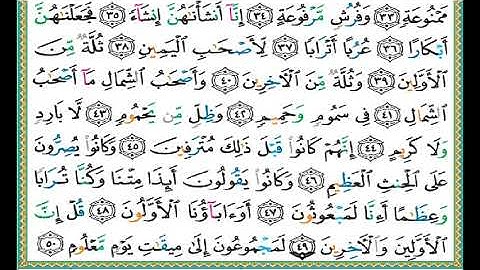 مَمْنُوعَةٍ ٣٣ وَفُرُشٍ مَّرْفُوعَةٍ ٣٤ إِنَّآ أَنشَأْنَٰهُنَّ إِنشَآءً ٣٥ فَجَعَلْنَٰهُنَّ
أَبْكَارًا ٣٦ عُرُبًا أَتْرَابًا ٣٧ لِّأَصْحَٰبِ ٱلْيَمِينِ ٣٨ ثُلَّةٌ مِّنَ
ٱلْأَوَّلِينَ ٣٩ وَثُلَّةٌ مِّنَ ٱلْـَٔاخِرِينَ ٤٠ وَأَصْحَٰبُ ٱلشِّمَالِ مَآ أَصْحَٰبُ
ٱلشِّمَالِ ٤١ فِى سَمُومٍ وَحَمِيمٍ ٤٢ وَظِلٍّ مِّن يَحْمُومٍ ٤٣ لَّا بَارِدٍ
وَلَا كَرِيمٍ ٤٤ إِنَّهُمْ كَانُوا۟ قَبْلَ ذَٰلِكَ مُتْرَفِينَ ٤٥ وَكَانُوا۟ يُصِرُّونَ
عَلَى ٱلْحِنثِ ٱلْعَظِيمِ ٤٦ وَكَانُوا۟ يَقُولُونَ أَئِذَا مِتْنَا وَكُنَّا تُرَابًا
وَعِظَٰمًا أَءِنَّا لَمَبْعُوثُونَ ٤٧ أَوَءَابَآؤُنَا ٱلْأَوَّلُونَ ٤٨ قُلْ إِنَّ
ٱلْأَوَّلِينَ وَٱلْـَٔاخِرِينَ ٤٩ لَمَجْمُوعُونَ إِلَىٰ مِيقَٰتِ يَوْمٍ مَّعْلُومٍ ٥٠